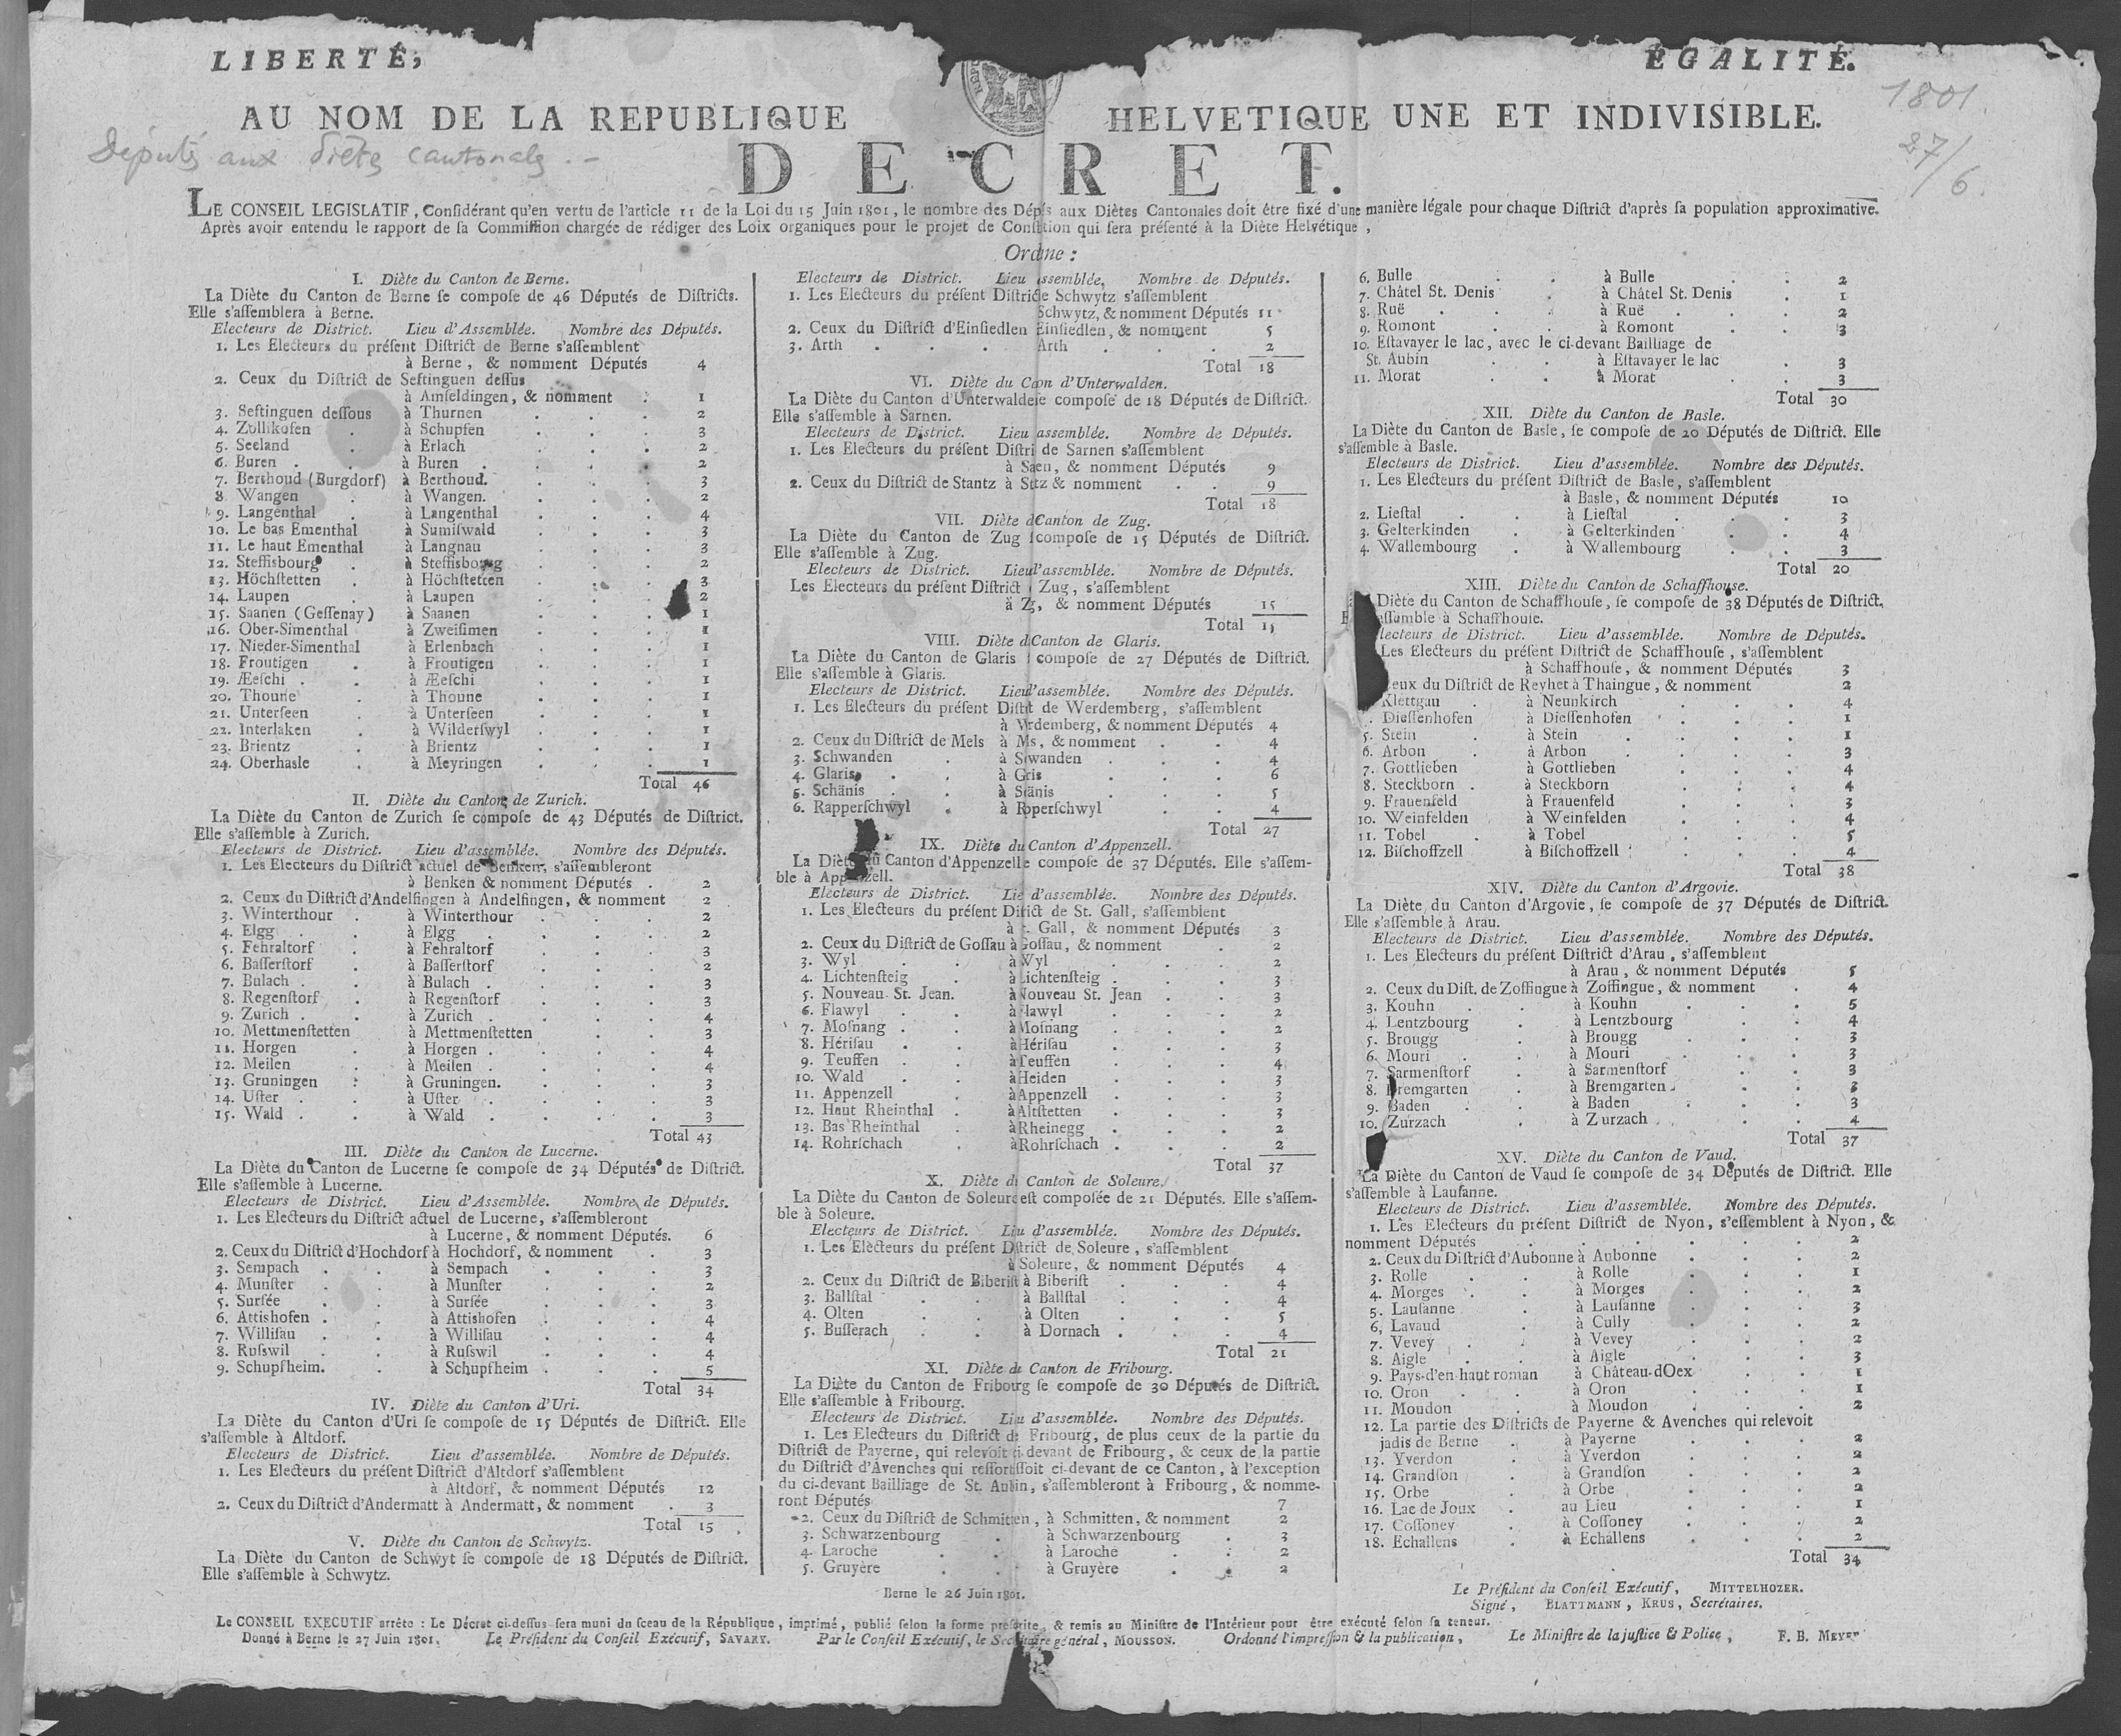 LIBERTÉ,
ÉGALITÉ.
AU NOM DE LA REPUBLIQUE HELVETIQUE UNE ET INDIVISIBLE.
1801
27/6.
Députés aux diètes cantonales. -
DECRET.
LE CONSEIL LEGISLATIF, Conſidérant qu'en vertu de l'article 11 de la Loi du 15 Juin 1801, le nombre des Dép s aux Diètes Cantonales doit être fixé d'une manière légale pour chaque Diſtrict d'après ſa population approximative.
Après avoir entendu le rapport de ſa Commiſſion chargée de rédiger des Loix organiques pour le projet de Conſtition qui ſera préſenté à la Diète Helvétique,
Ordne:
I. Diète du Canton de Berne.
La Diète du Canton de Berne ſe compoſe de 46 Députés de Diſtricts.
Elle s'aſſemblera à Berne.
Electeurs de District. Lieu d'Assemblée. Nombre des Députés.
1. Les Electeurs du préſent Diſtrict de Berne s'aſſemblent
à Berne, & nomment Députés 4
2. Ceux du Diſtrict de Seftinguen deſſus
à Amſeldingen, & nomment . 1
3. Seftinguen deſſous à Thurnen . . . 2
4. Zollikofen . à Schupfen . . . 3
5. Seeland . à Erlach . . . 2
6. Buren . . à Buren . . . 2
7. Berthoud (Burgdorf) à Berthoud. . . . 3
8. Wangen . à Wangen. . . . 2
9. Langenthal . à Langenthal . . . 4
10. Le bas Ementhal à Sumiſwald . . . 3
11. Le haut Ementhal à Langnau . . . 3
12. Steffisbourg . à Steffisbourg . . . 2
13. Höchſtetten . à Höchſtetten . . . 3
14. Laupen . à Laupen . . . 2
15. Saanen (Geſſenay) à Saanen . . . 1
16. Ober-Simenthal à Zweiſimen . . . 1
17. Nieder-Simenthal à Erlenbach . . . 1
18. Froutigen . à Froutigen . . . 1
19. Æeſchi . . à Æeſchi . . . 1
20. Thoune . à Thoune . . . 1
21. Unterſeen . à Unterſeen . . . 1
22. Interlaken . à Wilderſwyl . . . 1
23. Brientz . à Brientz . . . 1
24. Oberhasle . à Meyringen . . . 1
Total 46
II. Diète du Canton de Zurich.
La Diète du Canton de Zurich ſe compoſe de 43 Députés de Diſtrict.
Elle s'aſſemble à Zurich.
Electeurs de District. Lieu d'assemblée. Nombre des Députés.
1. Les Electeurs du Diſtrict actuel de Benken, s'aſſembleront
à Benken & nomment Députés . 2
2. Ceux du Diſtrict d'Andelfingen à Andelfingen, & nomment 2
3. Winterthour . à Winterthour . . . 2
4. Elgg . . à Elgg . . . 2
5. Fehraltorf . à Fehraltorf . . . 3
6. Baſſerſtorf . à Baſſerſtorf . . . 2
7. Bulach . . à Bulach . . . 3
8. Regenſtorf . à Regenſtorf . . . 3
9. Zurich . . à Zurich . . . 4
10. Mettmenſtetten à Mettmenſtetten . . 3
11. Horgen . à Horgen . . . 4
12. Meilen . à Meilen . . . 4
13. Gruningen . à Gruningen. . . . 3
14. Uſter . . à Uſter . . . 3
15. Wald . . à Wald . . . 3
Total 43
III. Diète du Canton de Lucerne.
La Diète du Canton de Lucerne ſe compoſe de 34 Députés de Diſtrict.
Elle s'aſſemble à Lucerne.
Electeurs de District. Lieu d'Assemblée. Nombre de Députés.
1. Les Electeurs du Diſtrict actuel de Lucerne, s'aſſembleront
à Lucerne, & nomment Députés. 6
2. Ceux du Diſtrict d'Hochdorf à Hochdorf, & nomment . 3
3. Sempach . . à Sempach . . . 3
4. Munſter . . à Munſter . . . 2
5. Surſée . . à Surſée . . . 3
6. Attishofen . . à Attishofen . . . 4
7. Williſau . . à Williſau . . . 4
8. Ruſswil . . à Ruſswil . . . 4
9. Schupfheim. . à Schupfheim . . . 5
Total 34
IV. Diète du Canton d'Uri.
La Diète du Canton d'Uri ſe compoſe de 15 Députés de Diſtrict. Elle
s'aſſemble à Altdorf.
Electeurs de District. Lieu d'assemblée. Nombre de Députés.
1. Les Electeurs du préſent Diſtrict d'Altdorf s'aſſemblent
à Altdorf, & nomment Députés 12
2. Ceux du Diſtrict d'Andermatt à Andermatt, & nomment . 3
Total 15
V. Diète du Canton de Schwytz.
La Diète du Canton de Schwyt ſe compoſe de 18 Députés de Diſtrict.
Elle s'aſſemble à Schwytz.
Electeurs de District. Lieu ssemblée, Nombre de Députés.
1. Les Electeurs du préſent Diſtricde Schwytz s'aſſemblent
Schwytz, & nomment Députés 11
2. Ceux du Diſtrict d'Einſiedlen Einſiedlen, & nomment 5
3. Arth . . . Arth . . . 2
Total 18
VI. Diète du Caon d'Unterwalden.
La Diète du Canton d'Unterwaldeſe compoſe de 18 Députés de Diſtrict.
Elle s'aſſemble à Sarnen.
Electeurs de District. Lieu assemblée. Nombre de Députés.
1. Les Electeurs du préſent Diſtri de Sarnen s'aſſemblent
à Saen, & nomment Députés 9
2. Ceux du Diſtrict de Stantz à Sttz & nomment . . 9
Total 18
VII. Diète dCanton de Zug.
La Diète du Canton de Zug ſcompoſe de 15 Députés de Diſtrict.
Elle s'aſſemble à Zug.
Electeurs de District. Lieud'assemblée. Nombre de Députés.
Les Electeurs du préſent Diſtrict Zug, s'aſſemblent
à Zg, & nomment Députés 15
Total 15
VIII. Diète dCanton de Glaris.
La Diète du Canton de Glaris ſ compoſe de 27 Députés de Diſtrict.
Elle s'aſſemble à Glaris.
Electeurs de District. Lieud'assemblée. Nombre des Députés.
1. Les Electeurs du préſent Diſtit de Werdemberg, s'aſſemblent
à Wrdemberg, & nomment Députés 4
2. Ceux du Diſtrict de Mels à Ms, & nomment . . 4
3. Schwanden . à Swanden . . . 4
4. Glaris . . à Gris . . . 6
5. Schänis . . à Stänis . . . 5
6. Rapperſchwyl . à Rpperſchwyl . . 4
Total 27
IX. Diète du Canton d'Appenzell.
La Diète du Canton d'Appenzelle compoſe de 37 Députés. Elle s'aſſem-
ble à Appenzell.
Electeurs de District. Lie d'assemblée. Nombre des Députés.
1. Les Electeurs du préſent Diſtict de St. Gall, s'aſſemblent
à . Gall, & nomment Députés 3
2. Ceux du Diſtrict de Goſſau à Goſſau, & nomment . 2
3. Wyl . . à Wyl . . . 2
4. Lichtenſteig . à Lichtenſteig . . . 3
5. Nouveau St. Jean. à Nouveau St. Jean . . 3
6. Flawyl . . à Flawyl . . . 2
7. Moſnang . . à Moſnang . . . 2
8. Hériſau . . à Hériſau . . . 3
9. Teuffen . . à Teuffen . . . 4
10. Wald . . à Heiden . . . 3
11. Appenzell . à Appenzell . . . 3
12. Haut Rheinthal . à Altſtetten . . . 3
13. Bas Rheinthal . à Rheinegg . . . 2
14. Rohrſchach . à Rohrſchach . . . 2
Total 37
X. Diète d Canton de Soleure.
La Diète du Canton de Soleure eſt compoſée de 21 Députés. Elle s'aſſem-
ble à Soleure.
Electeurs de District. Liu d'assemblée. Nombre des Députés.
1. Les Electeurs du préſent Dſtrict de Soleure, s'aſſemblent
à Soleure, & nomment Députés 4
2. Ceux du Diſtrict de Biberiſt à Biberiſt . . . 4
3. Ballſtal . . à Ballſtal . . . 4
4. Olten . . à Olten . . . 5
5. Buſſerach . . à Dornach . . . 4
Total 21
XI. Diète de Canton de Fribourg.
La Diète du Canton de Fribourg ſe compoſe de 30 Députés de Diſtrict.
Elle s'aſſemble à Fribourg.
Electeurs de District. Liu d'assemblée. Nombre des Députés.
1. Les Electeurs du Diſtrict de Fribourg, de plus ceux de la partie du
Diſtrict de Payerne, qui relevoit ci-devant de Fribourg, & ceux de la partie
du Diſtrict d'Avenches qui reſſortiſſoit ci-devant de ce Canton, à l'exception
du ci-devant Bailliage de St. Aubin, s'aſſembleront à Fribourg, & nomme-
ront Députés 7
2. Ceux du Diſtrict de Schmitten, à Schmitten, & nomment 2
3. Schwarzenbourg . à Schwarzenbourg . 3
4. Laroche . . à Laroche . . 2
5. Gruyère . . à Gruyère . . 2
6. Bulle . . à Bulle . . 2
7. Châtel St. Denis . à Châtel St. Denis . 1
8. Ruë . . à Ruë . . . 2
9. Romont . . à Romont . . 3
10. Eſtavayer le lac, avec le ci-devant Bailliage de
St. Aubin . . à Eſtavayer le lac . 3
11. Morat . . à Morat . . 3
Total 30
XII. Diète du Canton de Basle.
La Diète du Canton de Basle, ſe compoſe de 20 Députés de Diſtrict. Elle
s'aſſemble à Basle.
Electeurs de District. Lieu d'assemblée. Nombre des Députés.
1. Les Electeurs du préſent Diſtrict de Basle, s'aſſemblent
à Basle, & nomment Députés 10
2. Lieſtal . . à Lieſtal . . . 3
3. Gelterkinden . à Gelterkinden . . 4
4. Wallembourg . à Wallembourg . . 3
Total 20
XIII. Diète du Canton de Schaffhouse.
Diète du Canton de Schaffhouſe, ſe compoſe de 38 Députés de Diſtrict.
aſſemble à Schaffhouſe.
lecteurs de District. Lieu d'assemblée. Nombre de Députés.
Les Electeurs du préſent Diſtrict de Schaffhouſe, s'aſſemblent
à Schaffhouſe, & nomment Députés 3
eux du Diſtrict de Reyhet à Thaingue, & nomment 2
Klettgau . à Neunkirch . . . 4
Dieſſenhofen à Dieſſenhofen . . . 1
5. Stein . à Stein . . . 1
6. Arbon . à Arbon . . . 3
7. Gottlieben à Gottlieben . . . 4
8. Steckborn . à Steckborn . . . 4
9. Frauenfeld à Frauenfeld . . . 3
10. Weinfelden à Weinfelden . . . 4
11. Tobel . à Tobel . . . 5
12. Biſchoffzell à Biſchoffzell . . . 4
Total 38
XIV. Diète du Canton d'Argovie.
La Diète du Canton d'Argovie, ſe compoſe de 37 Députés de Diſtrict.
Elle s'aſſemble à Arau.
Electeurs de District. Lieu d'assemblée. Nombre des Députés.
1. Les Electeurs du préſent Diſtrict d'Arau, s'aſſemblent
à Arau, & nomment Députés 5
2. Ceux du Diſt. de Zoffingue à Zoffingue, & nomment . 4
3. Kouhn . . à Kouhn . . 5
4. Lentzbourg . à Lentzbourg . . 4
5. Brougg . à Brougg . . . 3
6. Mouri . . à Mouri . . . 3
7. Sarmenſtorf . à Sarmenſtorf . . 3
8. Bremgarten . à Bremgarten . . 3
9. Baden . . à Baden . . . 3
10. Zurzach . à Zurzach . . . 4
Total 37
XV. Diète du Canton de Vaud.
La Diète du Canton de Vaud ſe compoſe de 34 Députés de Diſtrict. Elle
s'aſſemble à Lauſanne.
Electeurs de District. Lieu d'assemblée. Nombre des Députés.
1. Les Electeurs du préſent Diſtrict de Nyon, s'eſſemblent à Nyon, &
nomment Députés . . . . . . 2
2. Ceux du Diſtrict d'Aubonne à Aubonne . . . 2
3. Rolle . . à Rolle . . . 1
4. Morges . . à Morges . . . 2
5. Lauſanne . à Lauſanne . . . 3
6. Lavaud . à Cully . . . 2
7. Vevey . . à Vevey . . . 2
8. Aigle . . à Aigle . . . 3
9. Pays-d'en haut roman à Château-dOex . . 1
10. Oron . . à Oron . . . 1
11. Moudon . à Moudon . . . 2
12. La partie des Diſtricts de Payerne & Avenches qui relevoit
jadis de Berne . à Payerne . . . 2
13. Yverdon . à Yverdon . . . 2
14. Grandſon . à Grandſon . . . 2
15. Orbe . à Orbe . . . 2
16. Lac de Joux . au Lieu . . . 1
17. Coſſoney . à Coſſoney . . . 2
18. Echallens . à Echallens . . . 2
Total 34
Berne le 26 Juin 1801.
Le Préſident du Conſeil Exécutif, MITTELHOZER.
Signé, BLATTMANN, KRUS, Secrétaires.
Le CONSEIL EXECUTIF arrête: Le Décret ci-deſſus ſera muni du ſceau de la République, imprimé, publié ſelon la forme preſcrite, & remis au Miniſtre de l'Intérieur pour être exécuté ſelon ſa teneur.
Donné à Berne le 27 Juin 1801. Le Préſident du Conſeil Exécutif, SAVARY. Par le Conſeil Exécutif, le Secrétaire général, MOUSSON. Ordonné l'impreſſion & la publication, Le Miniſtre de la juſtice & Police, F. B. MEYER